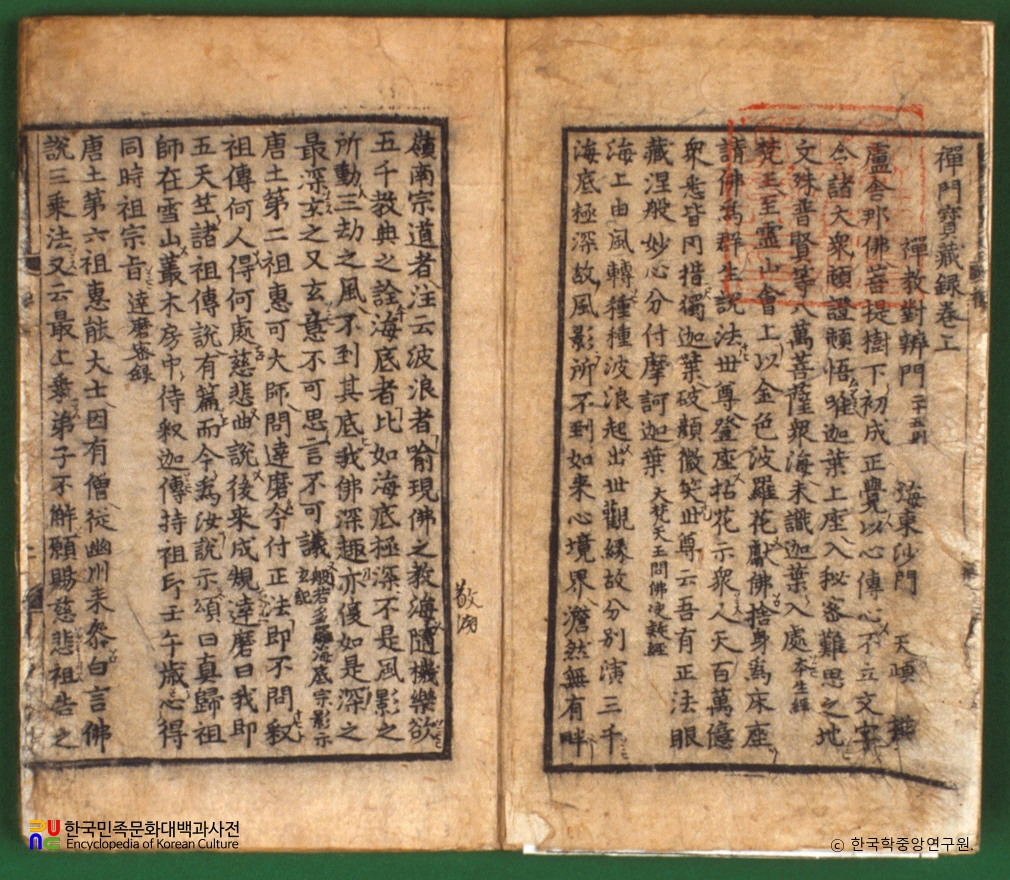 禪門寶藏録卷上
禪教對辨門 二十五則 海東沙門 天頙 撰
盧舎那佛菩提樹下初成正覺以心傳心不立文字
令諸大衆頓證頓悟唯迦葉上座入秘密難思之地
文殊普賢等八萬菩薩衆海未識迦葉入處 本生經
梵王至靈山會上以金色波羅花獻佛捨身爲床座
請佛爲群生說法世尊登座拈花示衆人天百萬億
衆悉皆罔措獨迦葉破顔微笑世尊云吾有正法眼
藏涅般妙心分付摩訶迦葉 大梵天王問佛決疑經
海上由風轉種種波浪起出世觀緣故分別演三千
海底極深故風影所不到如来心境界澹然無有畔
嶺南宗道者注云波浪者喻現佛之教海隨機樂欲
五千教典之詮海底者比如海底極深不是風影之
所動三劫之風不到其底我佛深趣亦復如是深之
最深玄之又玄意不可思言不可議 般若多羅海底宗影示玄記
唐土第二祖惠可大師問達磨今付正法即不問釈
祖傳何人得何處慈悲曲說後来成規達磨曰我即
五天竺諸祖傳說有篇而今爲汝說示頌曰真歸祖
師在雪山叢木房中侍釈迦傳持祖印壬午歳心得
同時祖宗旨 達磨密録
唐土第六祖惠能大士因有僧從幽州来叅白言佛
說三乘法又云最上乘弟子不解願賜慈悲祖告之
한국민족문화대백과사전
Encyclopedia of Korean Culture
© 한국학중앙연구원